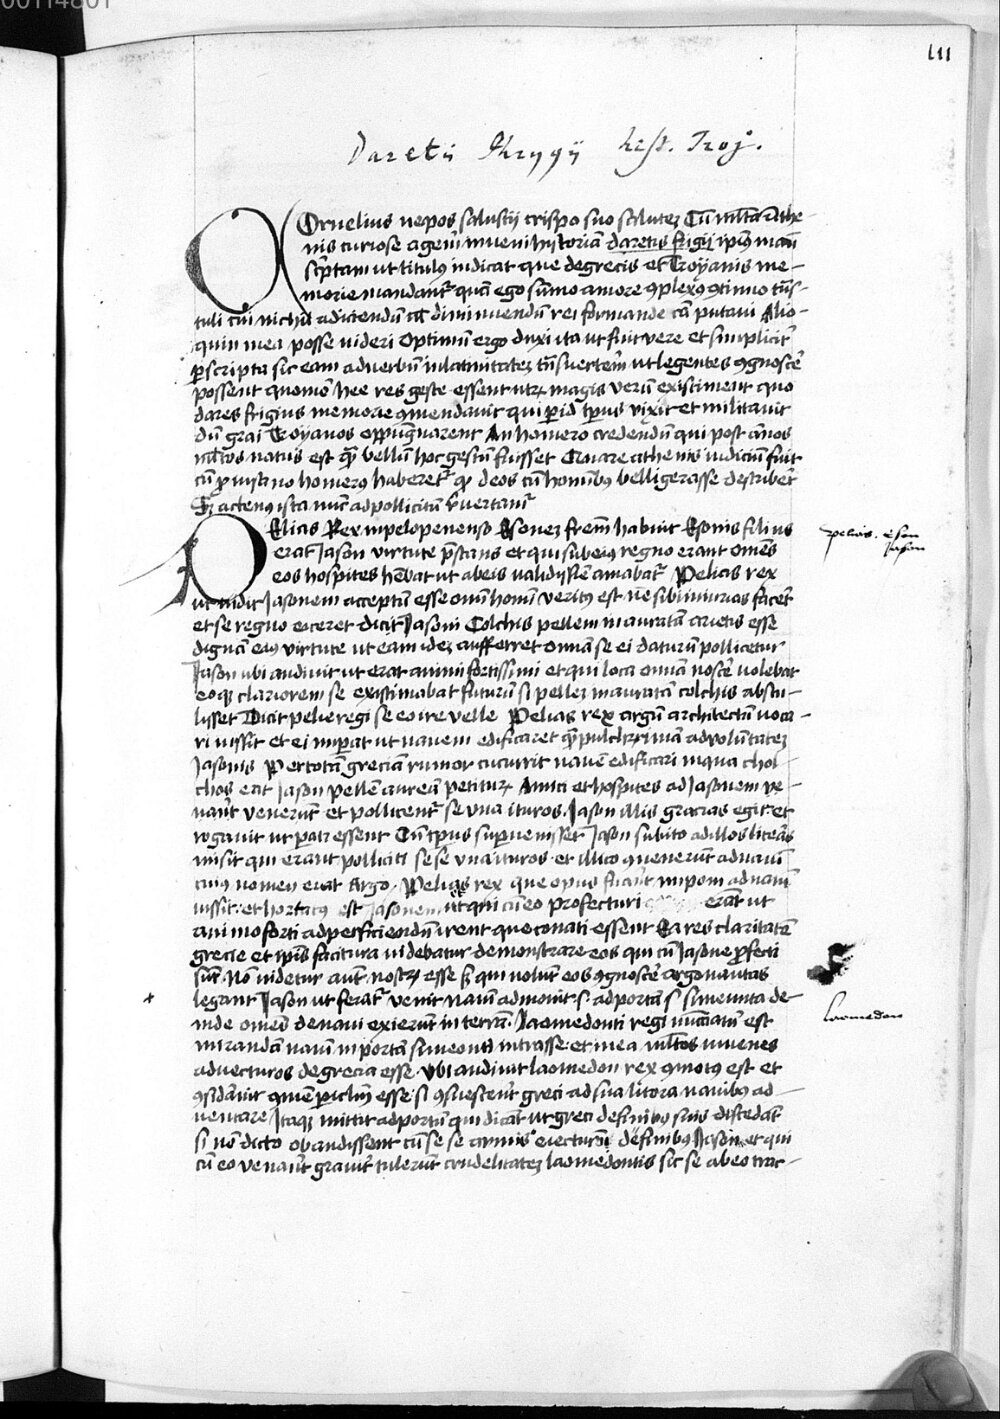 00114801
LII
Daretis Phrygij hist. Troj.
Ornelius nepos salustij crispo suo salutez Cū ml̄ta athe-
nis curiose agerē inveni historiā daretis frigij ipiꝰ manū
sc̄ptam ut titulꝰ indicat que de grecis et Troyanis me-
morie mandant̄ quā ego sūmo amore ꝯplexꝰ ꝯtinuo tn̄s-
tuli cui nichil adiciendū vl̄ diminuendū rei formande cā putavi Alio-
quin mea posse videri Optimū ergo duxi ita ut fuit vere et simplicit̄
ꝑscripta sic eam ad verbū in latinitatez tn̄svertere ut legentes ꝯgnoscē
possent quomō hee res geste essent utrꝝ magis verū existiment quo
dares frigius memorie ꝯmendavit qui ꝑ id tp̄us vixit et militavit
dū grai Troyanos oppūgnarent An homero credendū qui post ānos
ml̄tos natus est qꝫ bellū hoc gestū fuisset Cuius re athenis iudiciū fuit
cū ꝓ insano homerꝰ haberet̄ qꝫ deos cū hominibꝰ belligerasse describeret
Sꝫ actenꝰ ista nūc ad pollicitū vertam̄
PElias Rex in pelopenenso Esonez frem̄ habuit Esonis filius
erat Jason virtute p̄stans et qui sub eiꝰ regno erant omēs
eos hospites hēbat ut ab eis validissīe amabat̄ Pelias rex
ut vidit Jasonem acceptū esse omī homī veritꝰ est ne sibi iniurias facēt
et se regno eiceret dicit Jasoni Colchis pellem inauratā arietis esse
dignā eiꝰ virtute ut eam idez aufferret omnia se ei daturū pollicetur
Jason ubi audivit ut erat animi fortissimi et qui loca omnia noscē volebat
eoqꝫ clariorem se existimabat futurū si pellez inauratā colchis abstu-
lisset Dicit pelie regi se eo ire velle Pelias rex argū architectū voca-
ri iussit et ei imꝑat ut navem edificaret qꝫ pulcherrimā ad volūtatez
Jasonis Per totā greciā rumor cucurrit navē edificari in qua chol-
chos eat Jason pellē aureā petiturꝰ Amici et hospites ad Jasonem ve-
nāt venerūt et pollicent̄ se una ituros. Jason illis gracias egit et
rogavit ut parati essent Cū tp̄us suꝑvenisset Jason subito ad illos litēas
misit qui erant polliciti sese una ituros et illico ꝯvenerūt ad navī
cuiꝰ nomen erat Argo. Pelias rex que opus fuāt imponi ad navī
iussit: et hortatus est Jasonem et qui cū eo profecturi erāt ut
animo forti ad perficiendū irent que conati essent Ea res claritatē
grecie et ip̄is factura videbatur demonstrare eos qui cū Jasone ꝓfecti
sūt Nō videtur aut nostrꝝ esse sꝫ qui volūt eos ꝯgnoscē argonautas
legant Jason ut ferat̄ venit navī admovit ad portā simeonta de-
inde omēs de navi exierūt in terrā. Laomedonti regi nūciatū est
mirandā navī in portā simeonti intrasse et in ea ml̄tos iuvenes
advecturos de grecia esse. Ubi audivit laomedon rex ꝯmotꝰ est et
ꝯsidāvit ꝯmune ꝑiclm̄ esse si ꝯsuescerēt greci ad sua litora navibꝰ ad-
ventare Itaqꝫ mittit ad portū qui dicāt ut greci de finibꝰ suis discedāt
si nō dicto obaudissent tū sese armis eiecturū de finibꝰ Jason et qui
cū eo venāt gravit̄ tulerūt crudelitatez laomedontis sic se ab eo trac-
pelias. eson
Jason
Laomedon